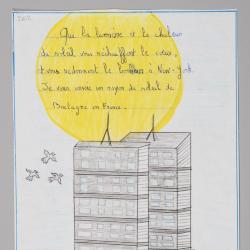 Que la lumière et la chaleur
du soleil vous réchauffent le cœur,
et vous redonnent le bonheur à New-York.
Je vous envoie un rayon de soleil de
Bretagne en France.